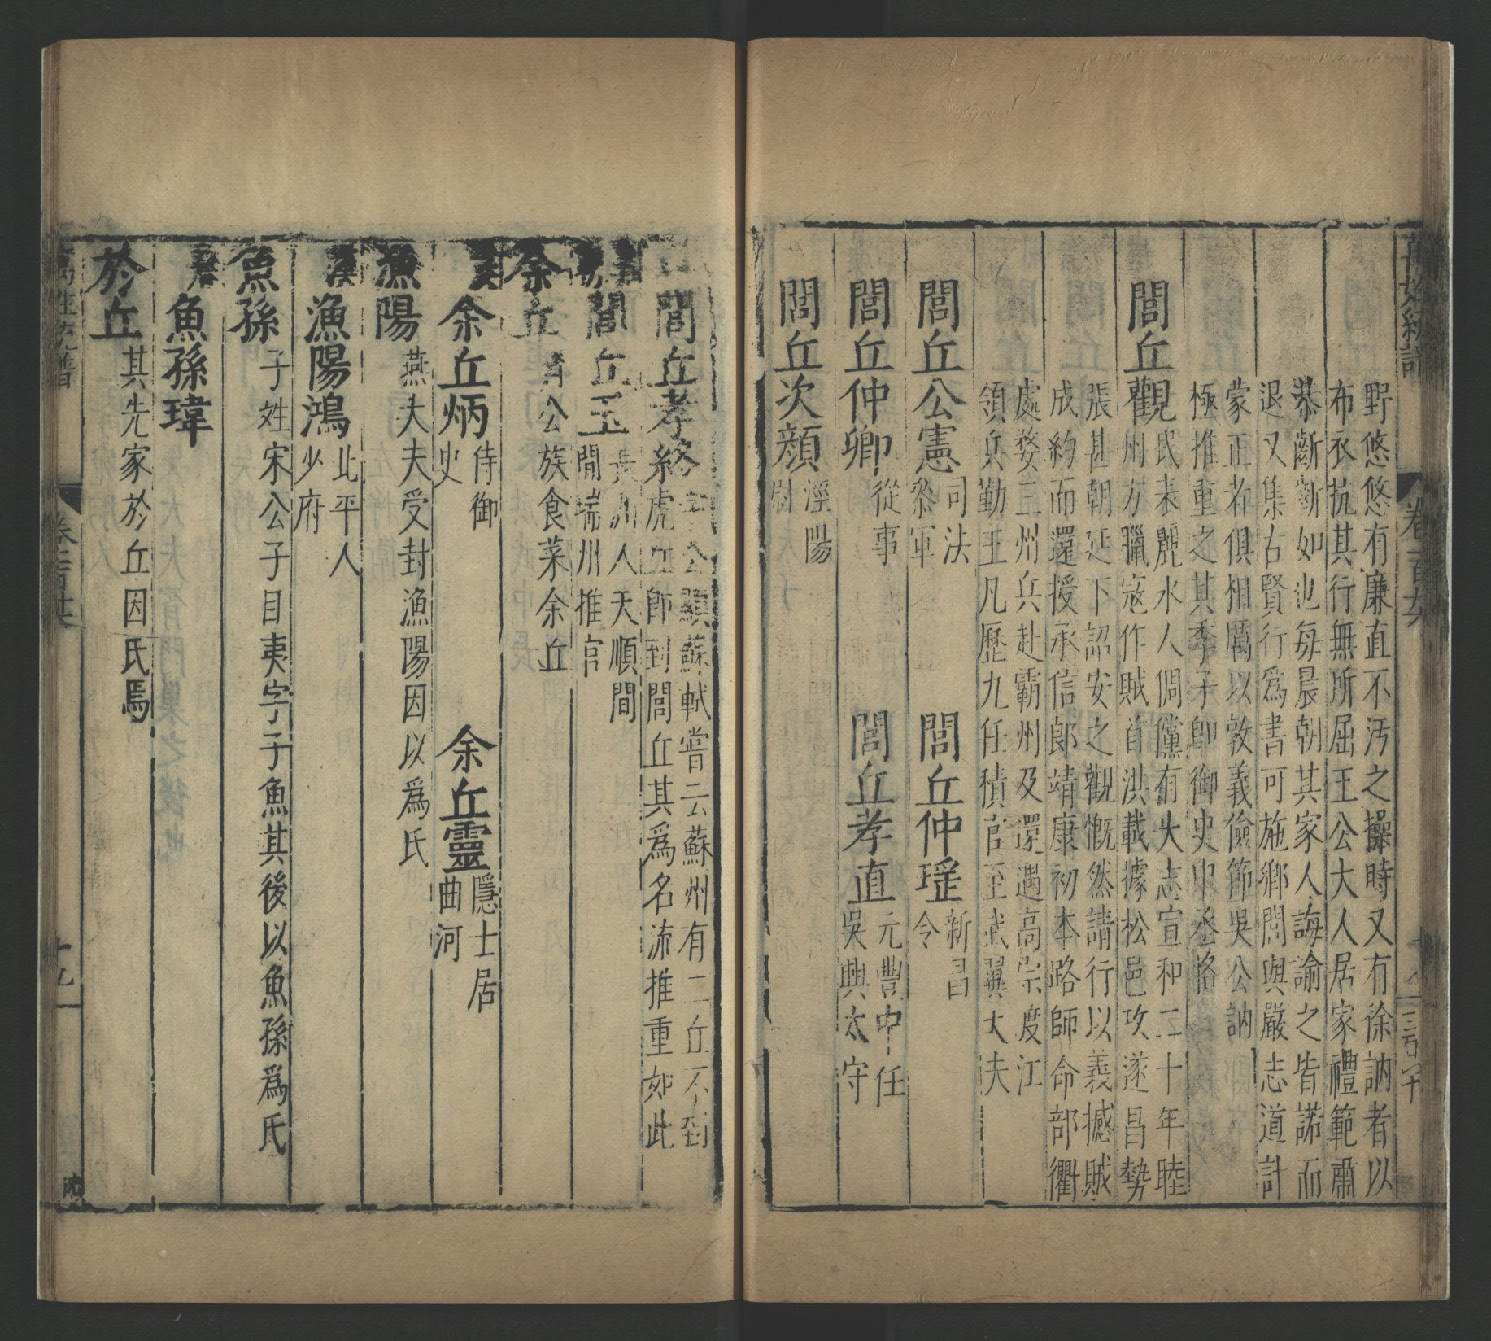 野悠悠有廉直不汚之操時又有徐訥者以
布衣抗其行無所屈王公大人居家禮範肅
恭斷斷如也每晨朝其家人誨諭之皆諾而
退又集古賢行爲書可施鄉閭與嚴志道計
蒙正者俱相厲以敦義儉節吳公訥
極推重之其季子卽御史中丞恪
閭丘觀
民表麗水人倜儻有大志宣和二十年睦
州方臘寇作賊首洪載據松邑攻遂昌勢
張甚朝廷下詔安之觀慨然請行以義撼賊
成約而還授承信郎靖康初本路師命部衢
處婺三州兵赴霸州及還遇高宗度江
領兵勤王凡歷九任積官至武翼大夫
閭丘公憲 司法
參軍
閭丘仲瑶 新昌
令
閭丘仲卿 從事
閭丘孝直 元豐中任
吳興太守
閭丘次顏 涇陽
尉
閭丘孝終
公顯蘇軾嘗云蘇州有二丘不到
虎丘卽到閭丘其爲名流推重如此
閭丘玉 長洲人天順間
間端州推官
余丘 公族食菜余丘
余丘炳 侍御
史
余丘靈 隱士居
曲河
漁陽 燕大夫受封漁陽因以爲氏
漁陽鴻 北平人
少府
魚孫 子姓宋公子目夷字子魚其後以魚孫爲氏
魚孫瑋
於丘 其先家於丘因氏焉